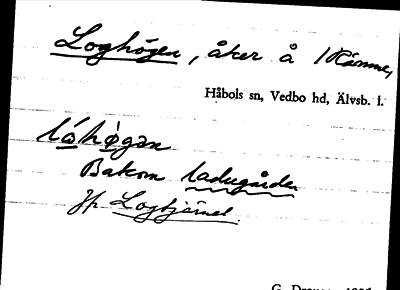 Loghögen, åker å 1 Rämne,
Håbols sn, Vedbo hd, Älvsb. l.
lóhø̀gən
Bakom ladugården
Jfr Logtjärnet.